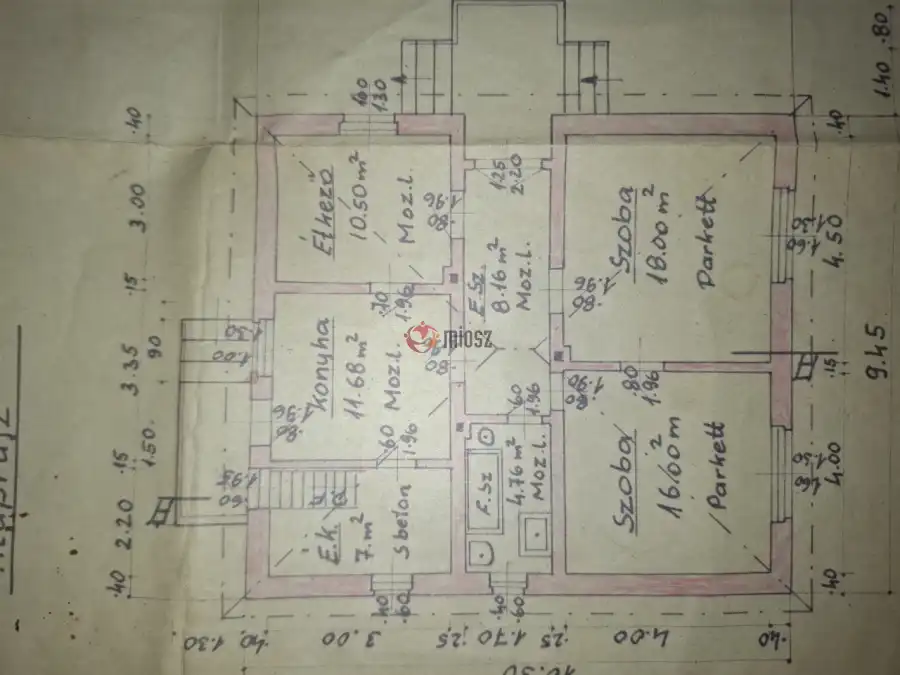 Étkező
10.50 m²
Moz.l.
E.Sz.
8.16 m²
Moz.l.
Szoba
18.00 m²
Parkett
Konyha
11.68 m²
Moz.l
Szoba
16.00 m²
Parkett
F.Sz
4.76 m²
Moz.l.
É.K.
7. m²
Sbeton
miosz
.40
3.00
.15
3.35
.15
2.20
.40
90
1.50
1.00
1.30
.40
3.00
.25
1.70
.25
4.00
.40
10.30
1.40
.80
.40
4.50
.15
4.00
.40
9.45
1.25
2.20
.80
1.96
.80
1.96
.70
1.96
.80
1.96
.80
1.96
.80
1.96
.60
1.96
.60
1.96
.40
.60
.40
.60